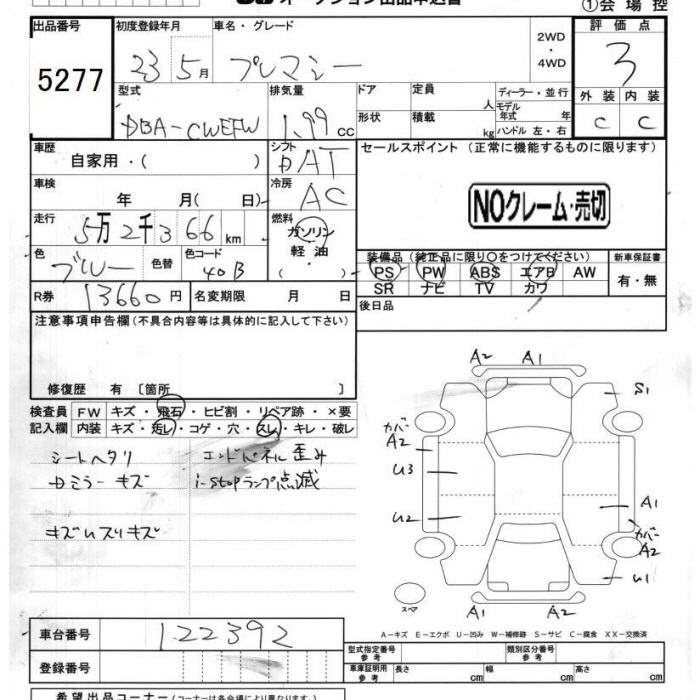 オークション出品申込書
①会場控
出品番号
5277
初度登録年月
23 5月
車名・グレード
プレマシー
2WD
・
4WD
評価点
3
外装 内装
C C
型式
DBA-CWEFW
排気量
1.99 cc
ドア
定員
人
ディーラー・並行
モデル年式 年
形状
積載
kg
ハンドル 左・右
車歴
自家用・( )
シフト
DAT
セールスポイント (正常に機能するものに限ります)
NOクレーム・売切
車検
年 月( 日)
冷房
AC
走行
5万2千366km
燃料
ガソリン
軽油
( ・ )
色
ブルー
色替
色コード
40B
装備品 (純正品に限り○をつけてください)
PS PW ABS エアB AW
SR ナビ TV カワ
新車保証書
有・無
R券
13660円
名変期限 月 日
後日品
注意事項申告欄(不具合内容等は具体的に記入して下さい)
修復歴 有〔箇所 〕
検査員
記入欄
FW キズ・飛石・ヒビ割・リペア跡・×要
内装 キズ・汚レ・コゲ・穴・スレ・キレ・破レ
シートヘタリ エンドパネル歪み
ミラーキズ i-stopランプ点滅
キズUスリキズ
A2 A1
S1
カバー
A2
U3
U2
A1
カバー
A2
U1
スペア
A1 A2
A-キズ E-エクボ U-凹み W-補修跡 S-サビ C-腐食 XX-交換済
車台番号
122392
登録番号
型式指定番号
参考
類別区分番号
参考
車庫証明用
参考
長さ cm
幅 cm
高さ cm
希望出品コーナー(コーナー名は各会場により異なります)